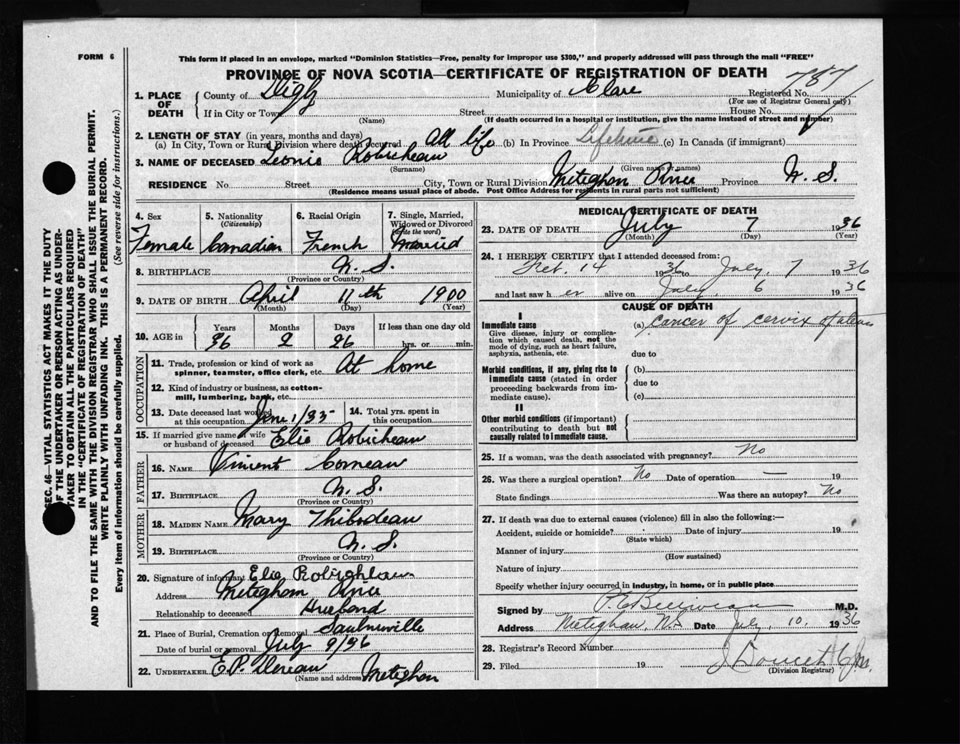 FORM 6
This form if placed in an envelope, marked "Dominion Statistics—Free, penalty for improper use $300," and properly addressed will pass through the mail "FREE"
PROVINCE OF NOVA SCOTIA—CERTIFICATE OF REGISTRATION OF DEATH
787
1. PLACE OF DEATH
County of Digby Municipality of Clare Registered No.
(For use of Registrar General only)
If in City or Town Street House No.
(Name) (If death occurred in a hospital or institution, give name instead of street and number)
2. LENGTH OF STAY (in years, months and days)
(a) In City, Town or Rural Division where death occurred All life (b) In Province Lifetime (c) In Canada (if immigrant)
3. NAME OF DECEASED Leonie Robicheau
(Surname) (Given name or names)
RESIDENCE No Street City, Town or Rural Division Meteghan River Province N. S.
(Residence means usual place of abode. Post Office Address for residents in rural parts not sufficient)
SEC. 46—VITAL STATISTICS ACT MAKES IT THE DUTY
OF THE UNDERTAKER OR PERSON ACTING AS UNDER-
TAKER TO OBTAIN ALL THE PARTICULARS REQUIRED
IN THE "CERTIFICATE OF REGISTRATION OF DEATH"
AND TO FILE THE SAME WITH THE DIVISION REGISTRAR WHO SHALL ISSUE THE BURIAL PERMIT.
WRITE PLAINLY WITH UNFADING INK. THIS IS A PERMANENT RECORD.
Every item of information should be carefully supplied. (See reverse side for instructions.)
4. Sex
Female
5. Nationality
(Citizenship)
Canadian
6. Racial Origin
French
7. Single, Married,
Widowed or Divorced
(Write the word)
Married
8. BIRTHPLACE N. S.
(Province or Country)
9. DATE OF BIRTH April 11th 1900
(Month) (Day) (Year)
10. AGE in
Years Months Days If less than one day old
36 2 26 hrs. or min.
OCCUPATION
11. Trade, profession or kind of work as
spinner, teamster, office clerk, etc. At home
12. Kind of industry or business, as cotton-
mill, lumbering, bank, etc.
13. Date deceased last worked
at this occupation June 1/35
14. Total yrs. spent in
this occupation
15. If married give name of wife
or husband of deceased Elie Robicheau
FATHER
16. NAME Vincent Comeau
17. BIRTHPLACE N. S.
(Province or Country)
MOTHER
18. MAIDEN NAME Mary Thibodeau
19. BIRTHPLACE N. S.
(Province or Country)
20. Signature of informant Elie
Address Meteghan River
Relationship to deceased Husband
21. Place of Burial, Cremation or Removal Saulnierville
Date of burial or removal July 9/36
22. UNDERTAKER E.P. Meteghan
(Name and address)
MEDICAL CERTIFICATE OF DEATH
23. DATE OF DEATH July 7 1936
(Month) (Day) (Year)
24. I HEREBY CERTIFY that I attended deceased from:
Feb. 14 1936 to July 7 1936
and last saw her alive on July 6 1936
CAUSE OF DEATH
I
Immediate cause
Give disease, injury or complica-
tion which caused death, not the
mode of dying, such as heart failure,
asphyxia, asthenia, etc.
(a) Cancer of cervix of uterus
due to
Morbid conditions, if any, giving rise to
immediate cause (stated in order
proceeding backwards from im-
mediate cause).
(b)
due to
(c)
II
Other morbid conditions (if important)
contributing to death but not
causally related to immediate cause.
25. If a woman, was the death associated with pregnancy? No
26. Was there a surgical operation? No Date of operation — 19
State findings Was there an autopsy? No
27. If death was due to external causes (violence) fill in also the following:—
Accident, suicide or homicide? Date of injury 19
(State which)
Manner of injury
(How sustained)
Nature of injury
Specify whether injury occurred in industry, in home, or in public place
Signed by M.D.
Address Meteghan, N.S. Date July, 10, 1936
28. Registrar's Record Number
29. Filed 19
(Division Registrar)